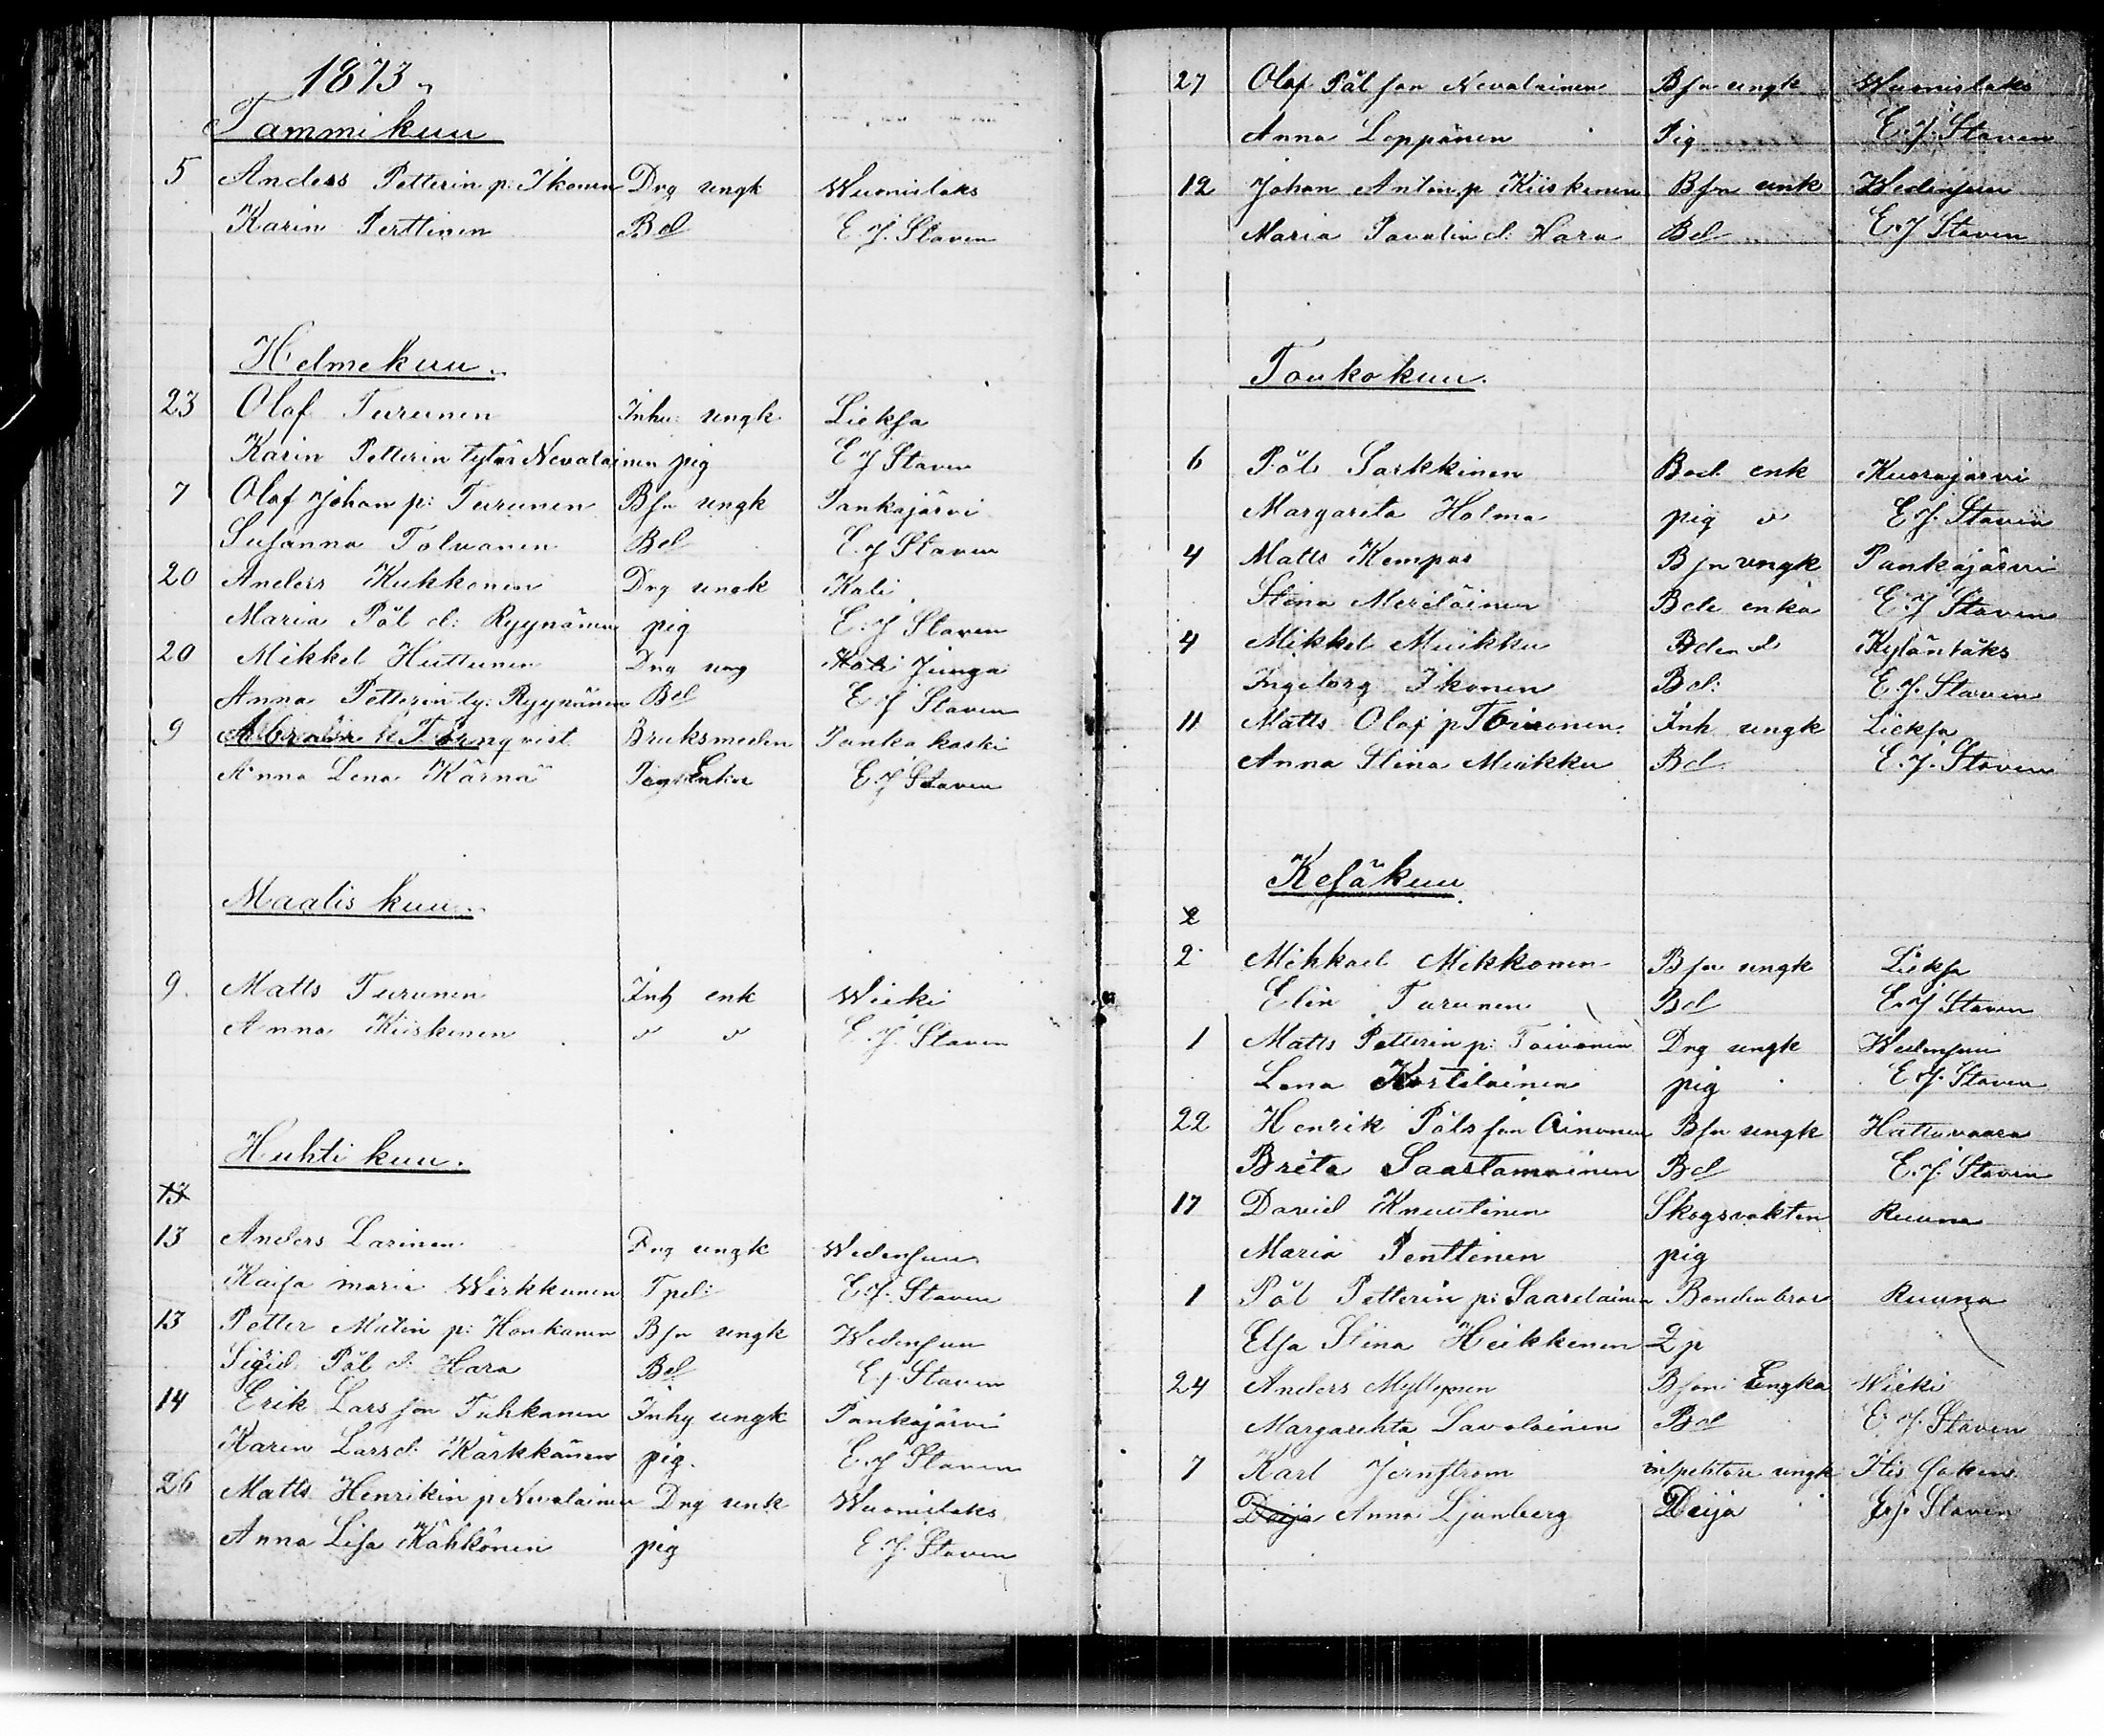 1873
Tammikuu
5 Anders Petterin p: Ikonen Dng ungk Wuonislaks
Karin Perttinen Bd E. J. Staven
Helmekuu.
23 Olof Turunen Inhu: ungk Lieksa
Karin Petterin tytär Nevalainen pig E J Staven
7 Olof Johan p: Turunen Bsn ungk Pankajärvi
Susanna Tolvanen Bd E. J Staven
20 Anders Kukkonen Dng ungk Koli
Maria Pål d: Ryynänen pig E. J Staven
20 Mikkel Huttunen Dng ung Koli Juuga
Anna Petterin ty: Ryynänen Bd E J Staven
9 Törnqvist Bruksmeden Pankakoski
Anna Lena Kärnä Enka E J Staven
Maaliskuu.
9. Matts Turunen Inh enk Wieki
Anna Kiiskinen v v E. J. Staven
Huhtikuu.
13
13 Anders Larinen Dng ungk Wedensuu
Kaisa maria Wirkkunen Tpd: E. J. Staven
13 Petter Matin p: Honkanen Bsn ungk Wedensuu
Sigrid Pål d. Hara Bd E. J. Staven
14 Erik Lars son Tuhkanen Inhy ungk Pankajärvi
Karin Larsd: Kärkkänen pig. E. J Staven
26 Matts Henrikin p Nevalainen Dng unk Wuonislaks
Anna Lisa Kähkönen pig E. J. Staven
27 Olof Pål son Nevalainen Bsn ungk Wuonislaks
Anna Loppönen Pig E. J. Staven
12 Johan Antin p Kiiskinen Bsn unk Wedensuu
Maria Pavalin d. Hara Bd E. J Staven
Toukokuu.
6 Påls Sarkkinen Bod enk Kuorajärvi
Margareta Holma pig v E J. Staven
4 Matts Kempas Bsn ungk Pankajärvi
Stina Meriläinen Bde enka E. J Staven
4 Mikkel Muikku Bden d Kylänlaks
Ingeborg Ikonen Bd: E. J. Staven
11 Matts Olof p Toivonen. Inh ungk Lieksa
Anna Stina Muikku Bd. E. J. Staven
Kesäkuu.
2
2 Mihkael Mikkonen Bsn ungk Lieksa
Elin Turunen Bd E. J Staven
1 Matts Petterin p: Toivonen Dng ungk Wedensuu
Lena Kortelainen pig E J. Staven
22 Henrik Påls son Ainonen Bsn ungk Hattuvaara
Brita Saastamoinen Bd E. J. Staven
17 David Knuutinen Skogsvakten Ruuna
Maria Penttinen pig
1 Pål Petterin p: Saarelainen Bonden bror Ruuna
Elsa Stina Heikkinen
24 Anders Myllynen Bson Engka Wieki
Margarehta Savolainen Bd E. J. Staven
7 Karl Jernstrom inspektore ungk
Deija Anna Ljunberg Deija E. J. Staven